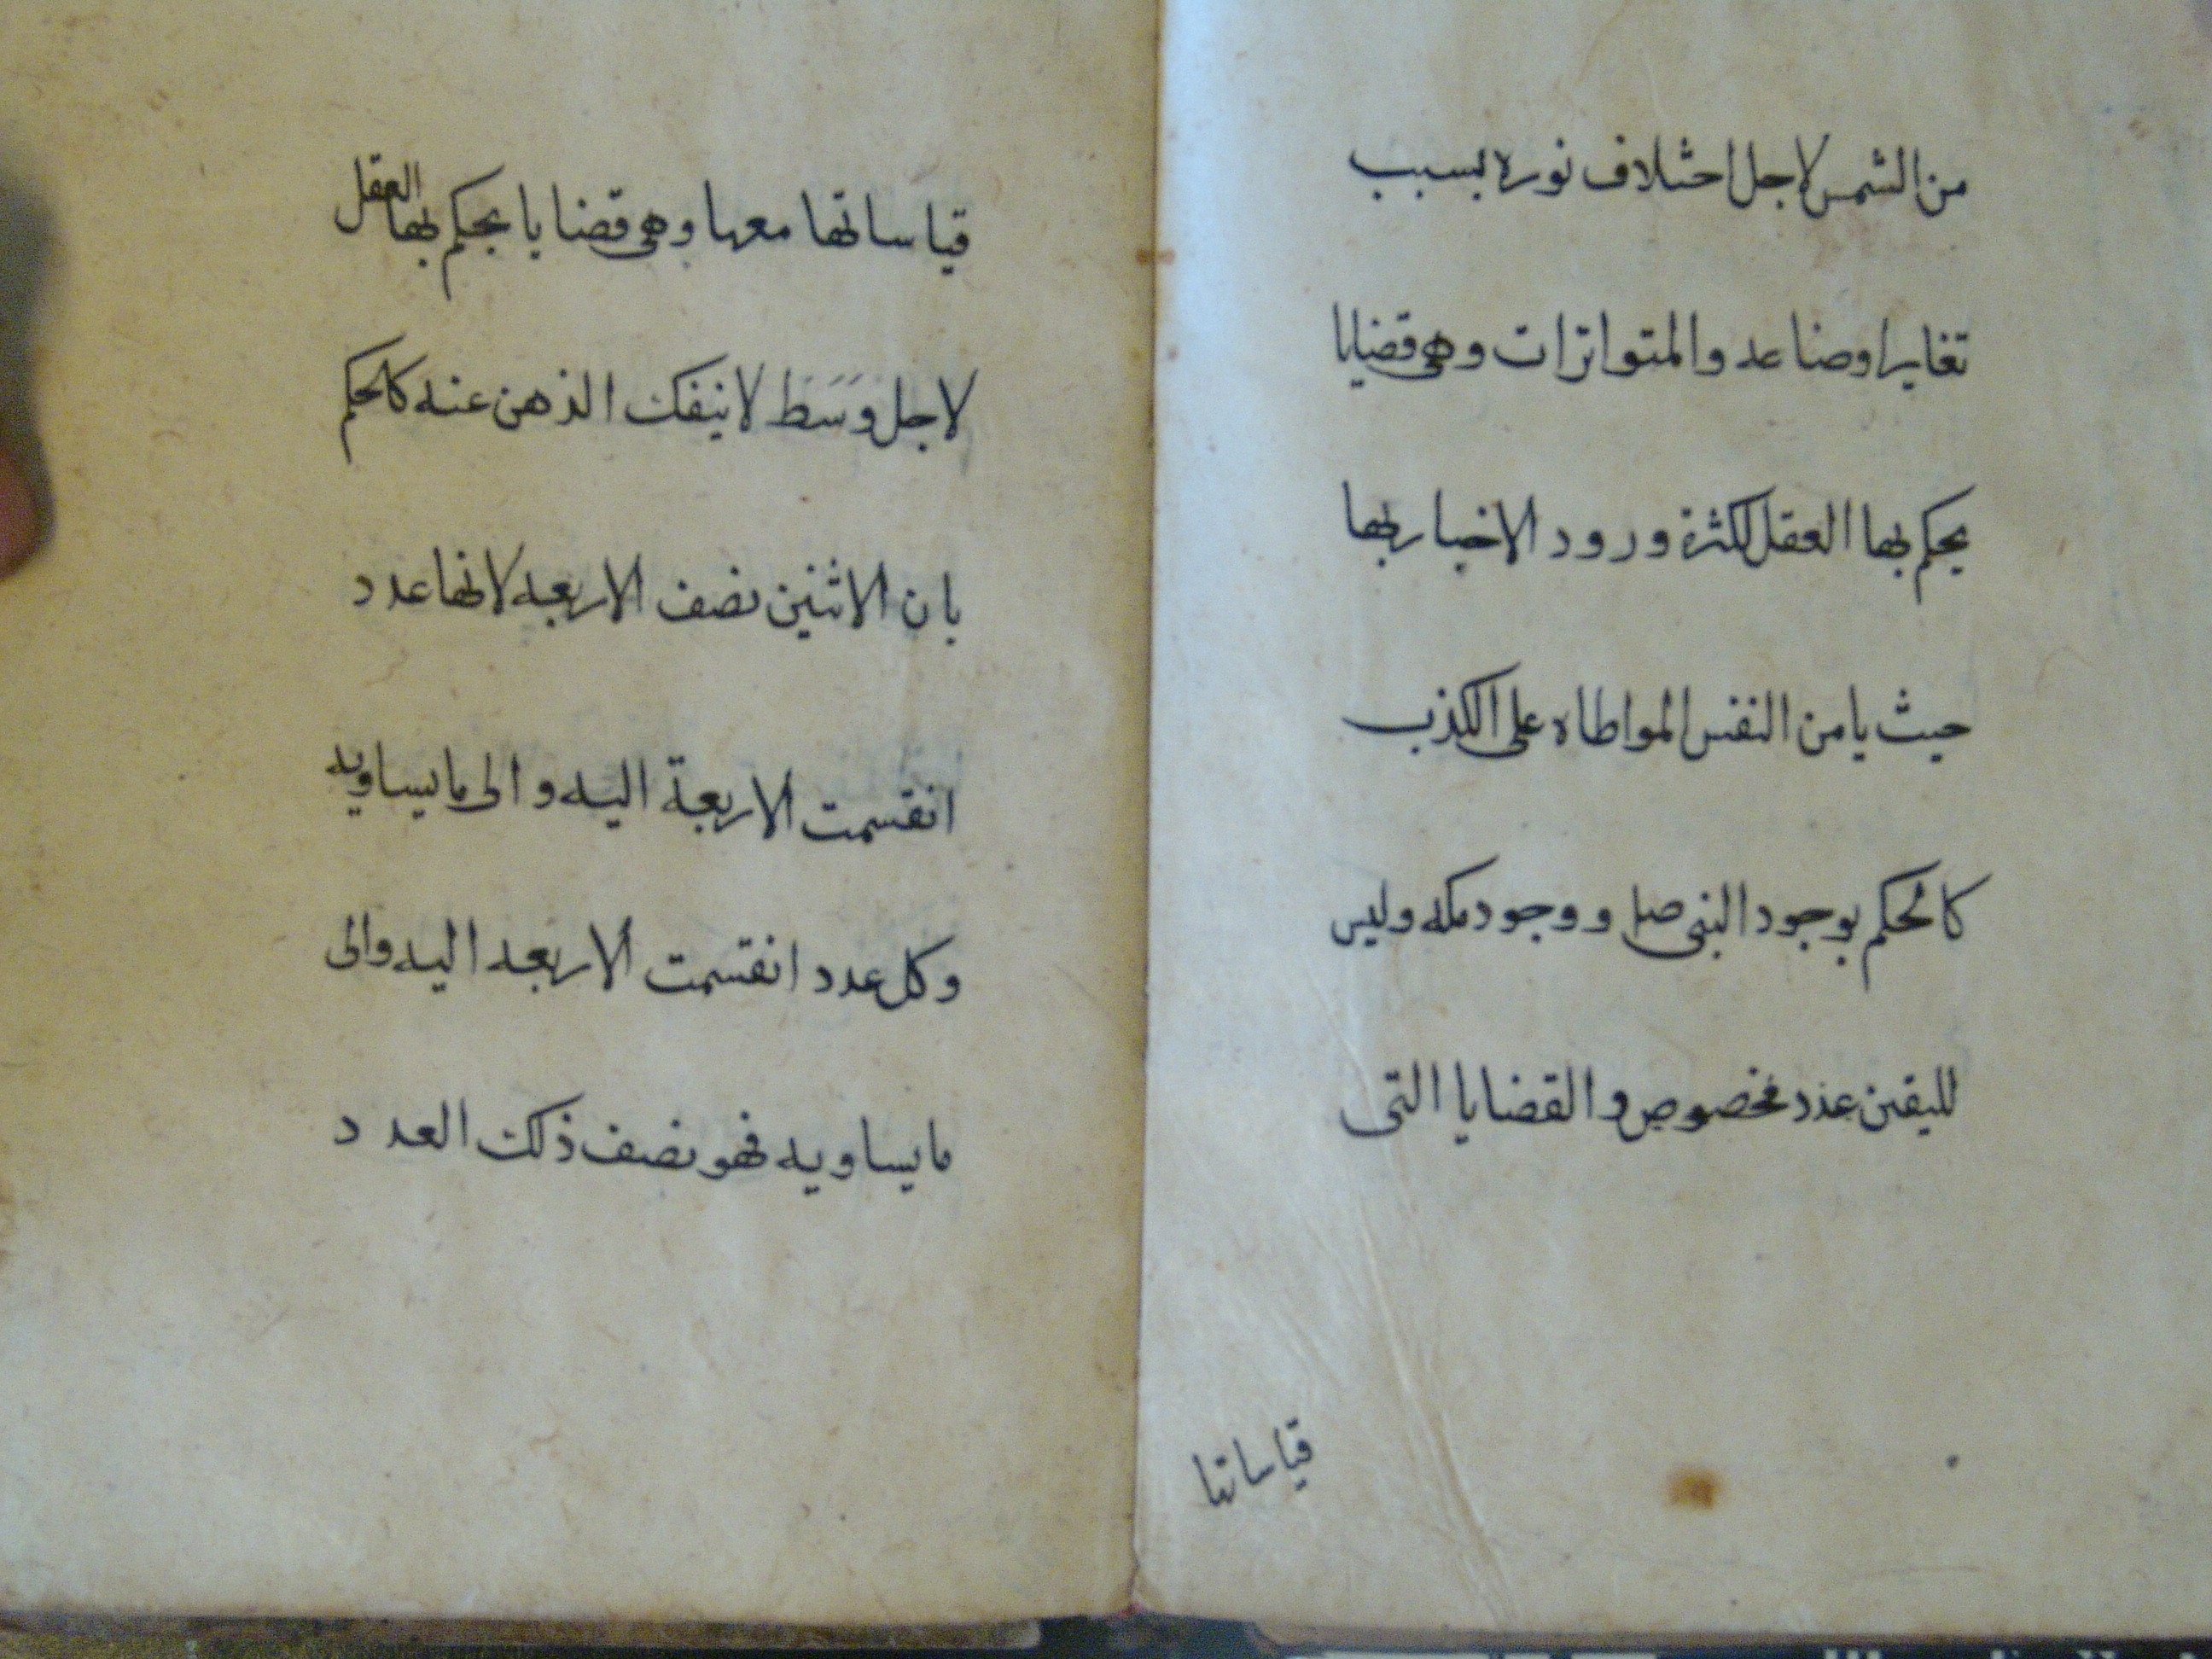 من الشمس لاجل اختلاف نوره بسبب
تغاير اوضاعه والمتواترات وهى قضايا
يحكم بها العقل لكثرة ورود الاخبار بها
حيث يامن النفس المواطاه على الكذب
كالحكم بوجود النبى صلم ووجود مكه وليس
لليقين عدد مخصوص والقضايا التى
قياساتها
قياساتها معها وهى قضايا يحكم بها العقل
لاجل وَسَط لا ينفك الذهن عنه كالحكم
بان الاثنين نصف الاربعه لانها عدد
انقسمت الاربعة اليه والى ما يساويه
وكل عدد انقسمت الاربعه اليه والى
ما يساويه فهو نصف ذلك العدد